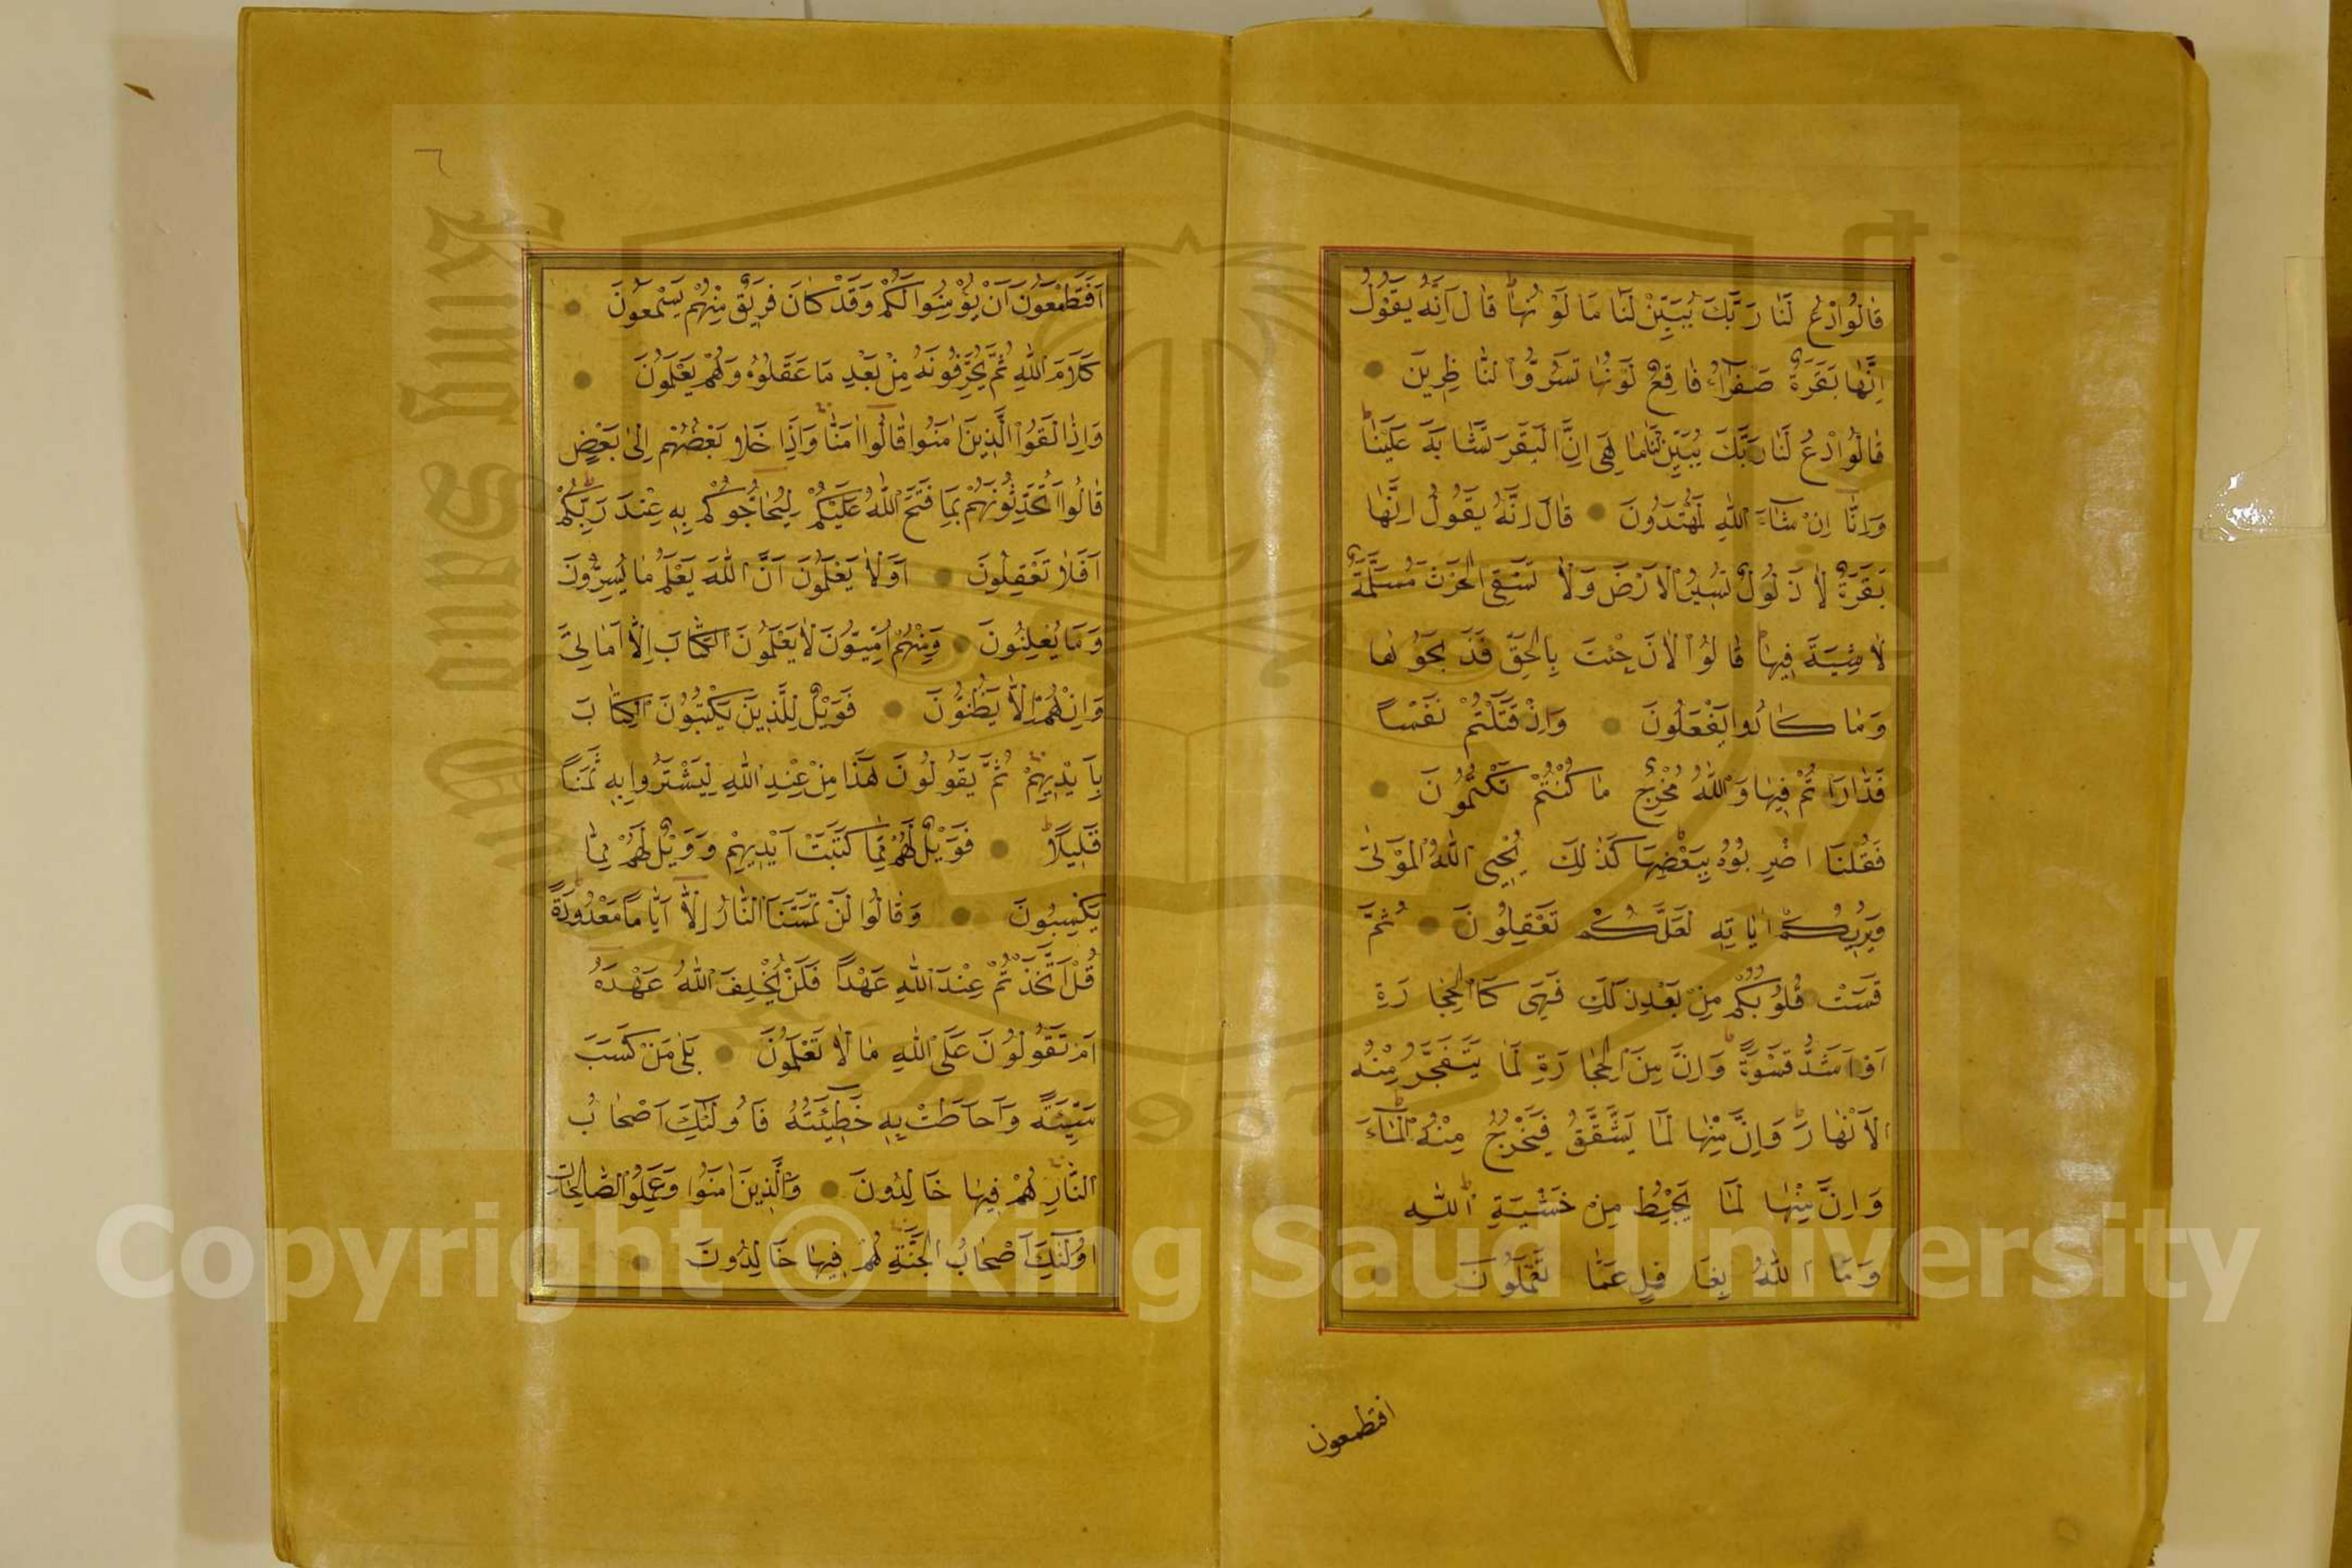 قَالُوا ادْعُ لَنَا رَبَّكَ يُبَيِّنْ لَنَا مَا لَوْنُهَا قَالَ اِنَّهُ يَقُولُ
اِنَّهَا بَقَرَةٌ صَفْرَاءُ فَاقِعٌ لَوْنُهَا تَسُرُّ النَّاظِرِينَ
قَالُوا ادْعُ لَنَا رَبَّكَ يُبَيِّنْ لَنَا مَا هِىَ اِنَّ الْبَقَرَ تَشَابَهَ عَلَيْنَا
وَاِنَّا اِنْ شَاءَ اللّٰهُ لَمُهْتَدُونَ قَالَ اِنَّهُ يَقُولُ اِنَّهَا
بَقَرَةٌ لَا ذَلُولٌ تُثِيرُ الْاَرْضَ وَلَا تَسْقِى الْحَرْثَ مُسَلَّمَةٌ
لَا شِيَةَ فِيهَا قَالُوا الْاٰنَ جِئْتَ بِالْحَقِّ فَذَبَحُوهَا
وَمَا كَادُوا يَفْعَلُونَ وَاِذْ قَتَلْتُمْ نَفْسًا
فَادَّارَاْتُمْ فِيهَا وَاللّٰهُ مُخْرِجٌ مَا كُنْتُمْ تَكْتُمُونَ
فَقُلْنَا اضْرِبُوهُ بِبَعْضِهَا كَذٰلِكَ يُحْيِى اللّٰهُ الْمَوْتٰى
وَيُرِيكُمْ اٰيَاتِهِ لَعَلَّكُمْ تَعْقِلُونَ ثُمَّ
قَسَتْ قُلُوبُكُمْ مِنْ بَعْدِ ذٰلِكَ فَهِىَ كَالْحِجَارَةِ
اَوْ اَشَدُّ قَسْوَةً وَاِنَّ مِنَ الْحِجَارَةِ لَمَا يَتَفَجَّرُ مِنْهُ
الْاَنْهَارُ وَاِنَّ مِنْهَا لَمَا يَشَّقَّقُ فَيَخْرُجُ مِنْهُ الْمَاءُ
وَاِنَّ مِنْهَا لَمَا يَهْبِطُ مِنْ خَشْيَةِ اللّٰهِ
وَمَا اللّٰهُ بِغَافِلٍ عَمَّا تَعْمَلُونَ
افتطمعون
٦
اَفَتَطْمَعُونَ اَنْ يُؤْمِنُوا لَكُمْ وَقَدْ كَانَ فَرِيقٌ مِنْهُمْ يَسْمَعُونَ
كَلَامَ اللّٰهِ ثُمَّ يُحَرِّفُونَهُ مِنْ بَعْدِ مَا عَقَلُوهُ وَهُمْ يَعْلَمُونَ
وَاِذَا لَقُوا الَّذِينَ اٰمَنُوا قَالُوا اٰمَنَّا وَاِذَا خَلَا بَعْضُهُمْ اِلٰى بَعْضٍ
قَالُوا اَتُحَدِّثُونَهُمْ بِمَا فَتَحَ اللّٰهُ عَلَيْكُمْ لِيُحَاجُّوكُمْ بِهِ عِنْدَ رَبِّكُمْ
اَفَلَا تَعْقِلُونَ اَوَلَا يَعْلَمُونَ اَنَّ اللّٰهَ يَعْلَمُ مَا يُسِرُّونَ
وَمَا يُعْلِنُونَ وَمِنْهُمْ اُمِّيُّونَ لَا يَعْلَمُونَ الْكِتَابَ اِلَّا اَمَانِىَّ
وَاِنْ هُمْ اِلَّا يَظُنُّونَ فَوَيْلٌ لِلَّذِينَ يَكْتُبُونَ الْكِتَابَ
بِاَيْدِيهِمْ ثُمَّ يَقُولُونَ هٰذَا مِنْ عِنْدِ اللّٰهِ لِيَشْتَرُوا بِهِ ثَمَنًا
قَلِيلًا فَوَيْلٌ لَهُمْ مِمَّا كَتَبَتْ اَيْدِيهِمْ وَوَيْلٌ لَهُمْ مِمَّا
يَكْسِبُونَ وَقَالُوا لَنْ تَمَسَّنَا النَّارُ اِلَّا اَيَّامًا مَعْدُودَةً
قُلْ اَتَّخَذْتُمْ عِنْدَ اللّٰهِ عَهْدًا فَلَنْ يُخْلِفَ اللّٰهُ عَهْدَهُ
اَمْ تَقُولُونَ عَلَى اللّٰهِ مَا لَا تَعْلَمُونَ بَلٰى مَنْ كَسَبَ
سَيِّئَةً وَاَحَاطَتْ بِهِ خَطِيئَتُهُ فَاُولٰئِكَ اَصْحَابُ
النَّارِ هُمْ فِيهَا خَالِدُونَ وَالَّذِينَ اٰمَنُوا وَعَمِلُوا الصَّالِحَاتِ
اُولٰئِكَ اَصْحَابُ الْجَنَّةِ هُمْ فِيهَا خَالِدُونَ
King Saud University
1957
Copyright © King Saud University